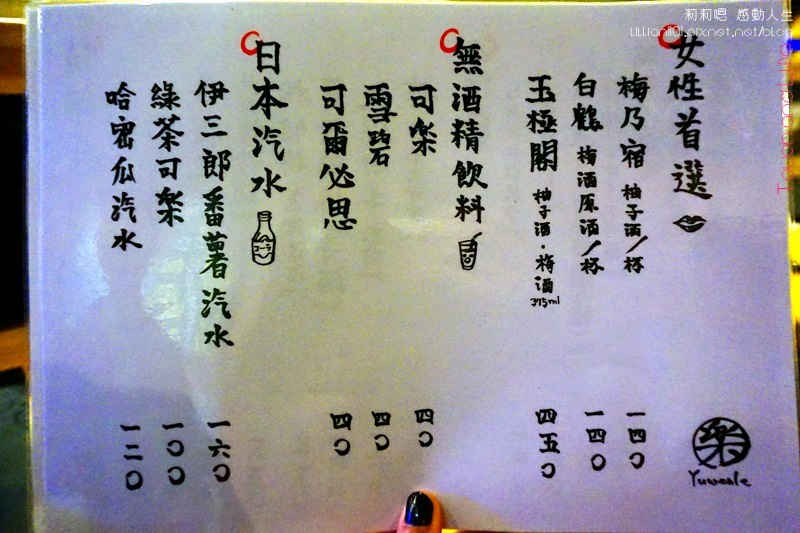 莉莉嗯 感動人生
女性首選
梅乃宿 柚子酒/杯 一四〇
白鶴 梅酒原酒/杯 一四〇
玉極閣 柚子酒・梅酒 375ml 四五〇
無酒精飲料
可樂 四〇
雪碧 四〇
可爾必思 四〇
日本汽水
コーラ
伊三郎番薯汽水 一六〇
綠茶可樂 一〇〇
哈密瓜汽水 一二〇
樂